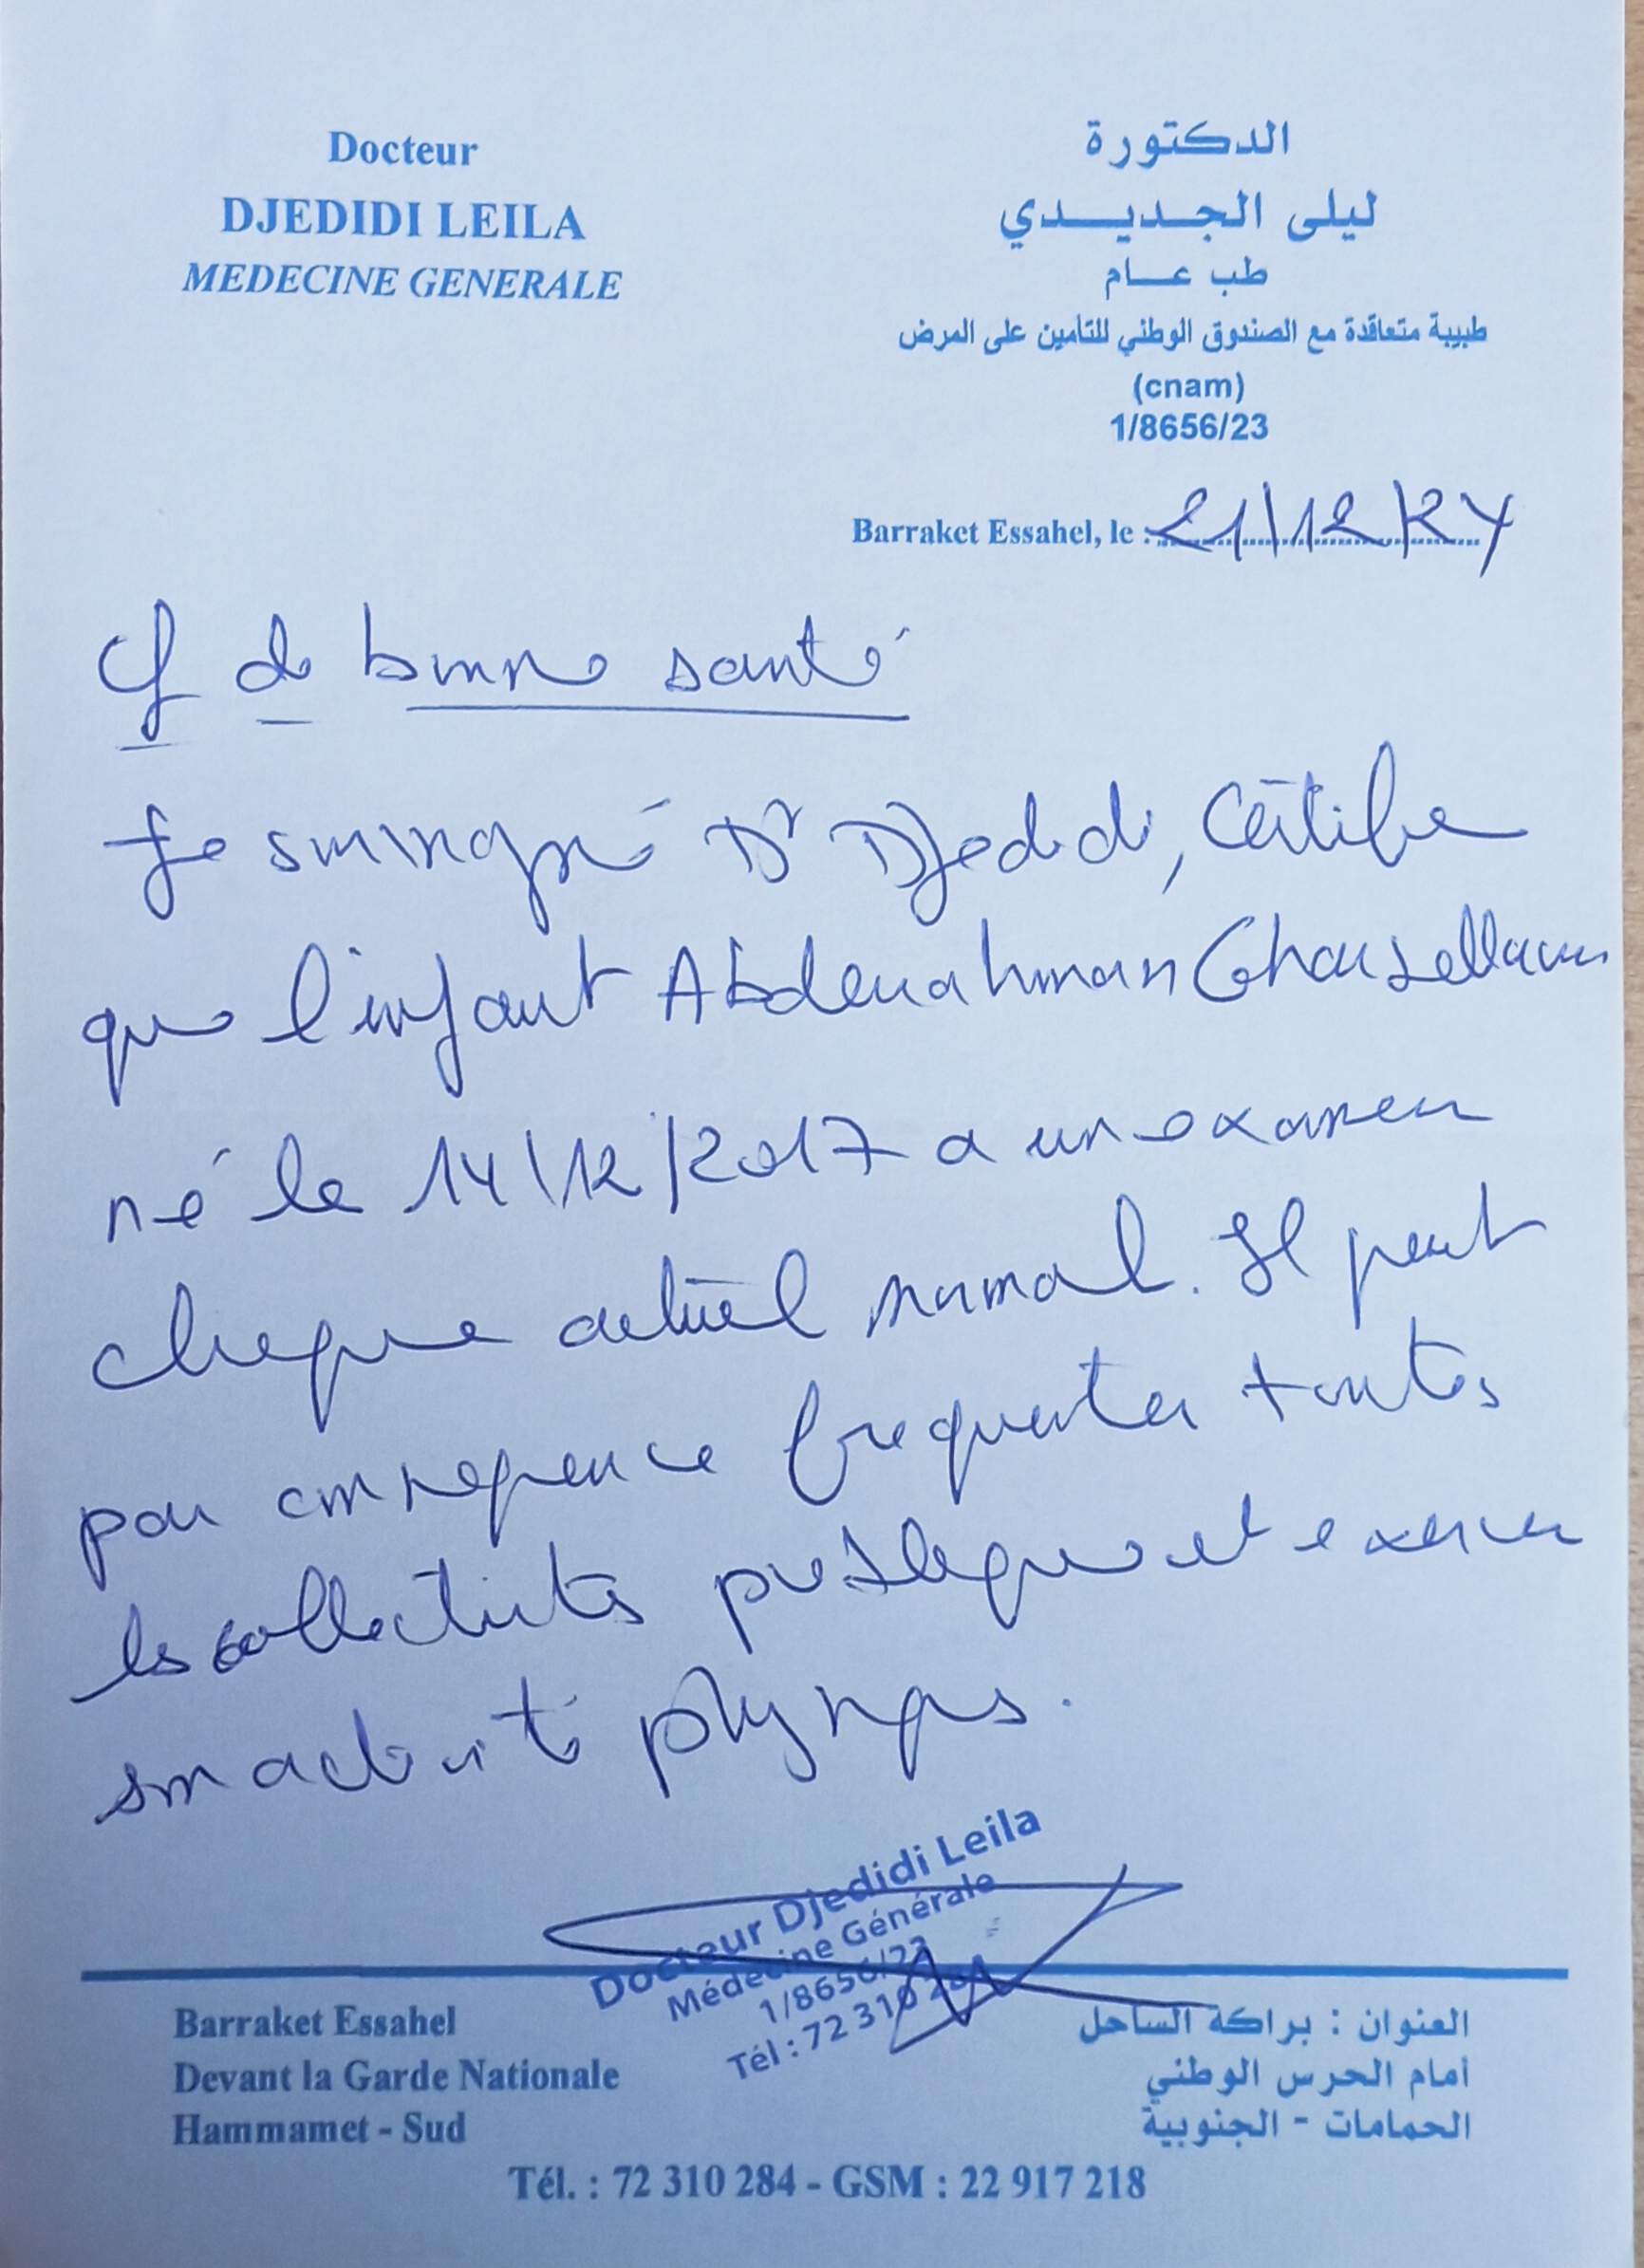 Docteur
DJEDIDI LEILA
MEDECINE GENERALE
الدكتورة
ليلى الجديدي
طب عام
طبيبة متعاقدة مع الصندوق الوطني للتأمين على المرض
(cnam)
1/8656/23
Barraket Essahel, le : 21/12/24
Cf de bonne santé
Je soussigné Dr Djedidi, Certifie
que l'enfant Abderrahman
né le 14/12/2017 a un examen
clinique actuel normal. Il peut
par conséquence frequenter toutes
les collectivités publiques et exercer
son activité physique.
Docteur Djedidi Leila
Médecine Générale
1/8656/23
Tél : 72 310 284
Barraket Essahel
Devant la Garde Nationale
Hammamet - Sud
العنوان : براكة الساحل
أمام الحرس الوطني
الحمامات - الجنوبية
Tél. : 72 310 284 - GSM : 22 917 218